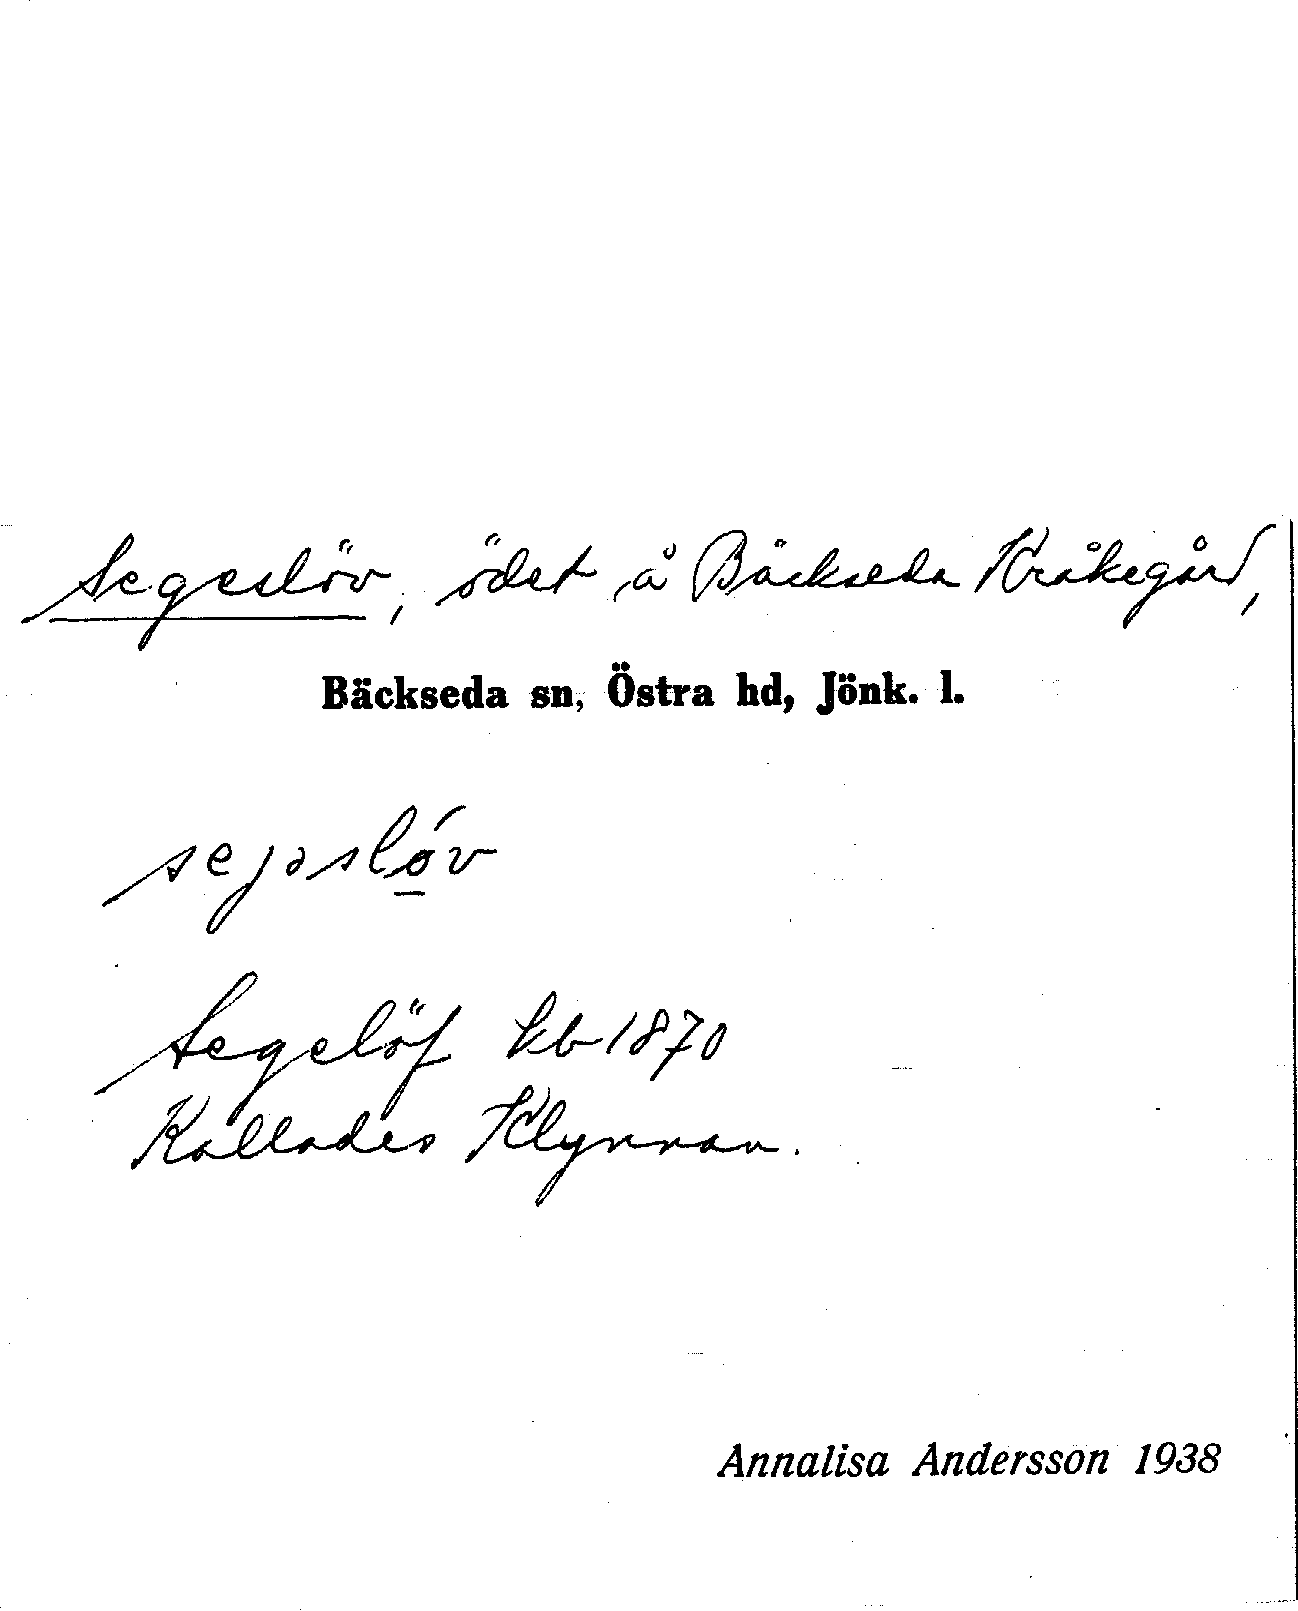 Segeslöv, ödet å Bäckseda Kråkegård,
Bäckseda sn, Östra hd, Jönk. l.
sejəslö́v
Segelöf kb 1870
Kallades Klynnan.
Annalisa Andersson 1938